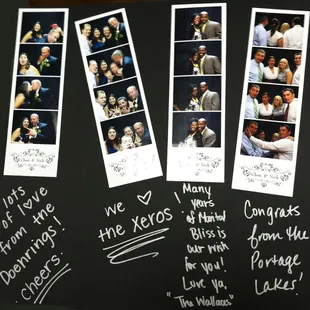 lots
of love
from the
Doehrings!
Cheers!
we ♡
the xeros
Many
years
of Marital
Bliss is
our wish
for you!
Love ya,
"The Wallaces"
Congrats
from the
Portage
Lakes!